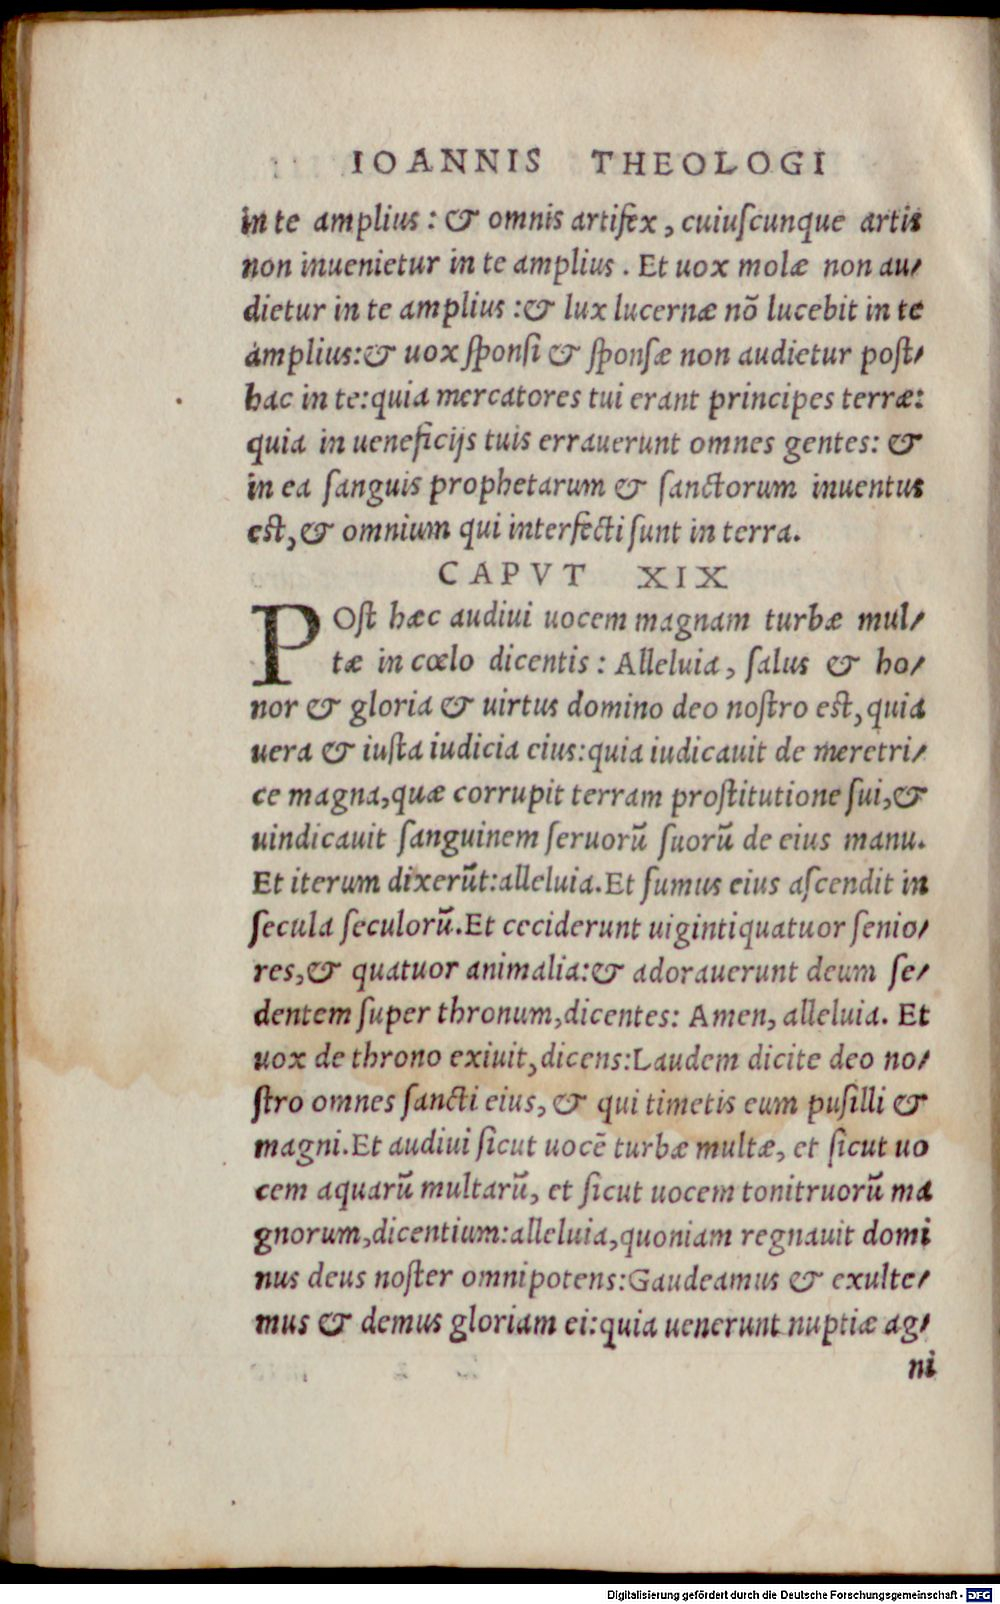 IOANNIS THEOLOGI
in te amplius : & omnis artifex , cuiuſcunque artis
non inuenietur in te amplius . Et uox molæ non au⸗
dietur in te amplius :& lux lucernæ nõ lucebit in te
amplius:& uox ſponſi & ſponſæ non audietur poſt⸗
hac in te:quia mercatores tui erant principes terræ:
quia in ueneficijs tuis errauerunt omnes gentes: &
in ea ſanguis prophetarum & ſanctorum inuentus
est,& omnium qui interfecti ſunt in terra.
CAPVT XIX
POſt hæc audiui uocem magnam turbæ mul⸗
tæ in cœlo dicentis : Alleluia , ſalus & ho⸗
nor & gloria & uirtus domino deo noſtro est,quia
uera & iuſta iudicia eius:quia iudicauit de meretri⸗
ce magna,quæ corrupit terram proſtitutione ſui,&
uindicauit ſanguinem ſeruorũ ſuorũ de eius manu.
Et iterum dixerũt:alleluia.Et fumus eius aſcendit in
ſecula ſeculorũ.Et ceciderunt uigintiquatuor ſenio⸗
res,& quatuor animalia:& adorauerunt deum ſe⸗
dentem ſuper thronum,dicentes: Amen, alleluia. Et
uox de throno exiuit,dicens:Laudem dicite deo no⸗
ſtro omnes ſancti eius, & qui timetis eum puſilli &
magni.Et audiui ſicut uocẽ turbæ multæ, et ſicut uo
cem aquarũ multarũ, et ſicut uocem tonitruorũ ma
gnorum,dicentium:alleluia,quoniam regnauit domi
nus deus noſter omnipotens:Gaudeamus & exulte⸗
mus & demus gloriam ei:quia uenerunt nuptiæ ag⸗
ni
Digitalisierung gefördert durch die Deutsche Forschungsgemeinschaft - DFG